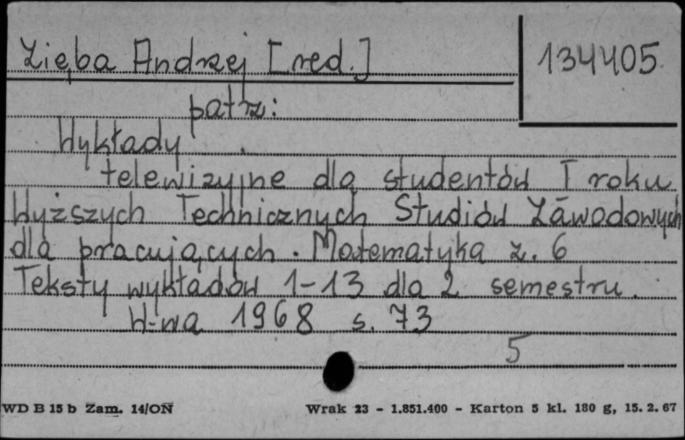 Zięba Andrzej [red.]
134405
patrz:
Wykłady
telewizyjne dla studentów I roku
Wyższych Technicznych Studiów Zawodowych
dla pracujących. Matematyka z. 6
Teksty wykładów 1-13 dla 2 semestru.
W-wa 1968 s. 73
5
WD B 15 b Zam. 14/ON Wrak 23 - 1.851.400 - Karton 5 kl. 180 g, 15. 2. 67